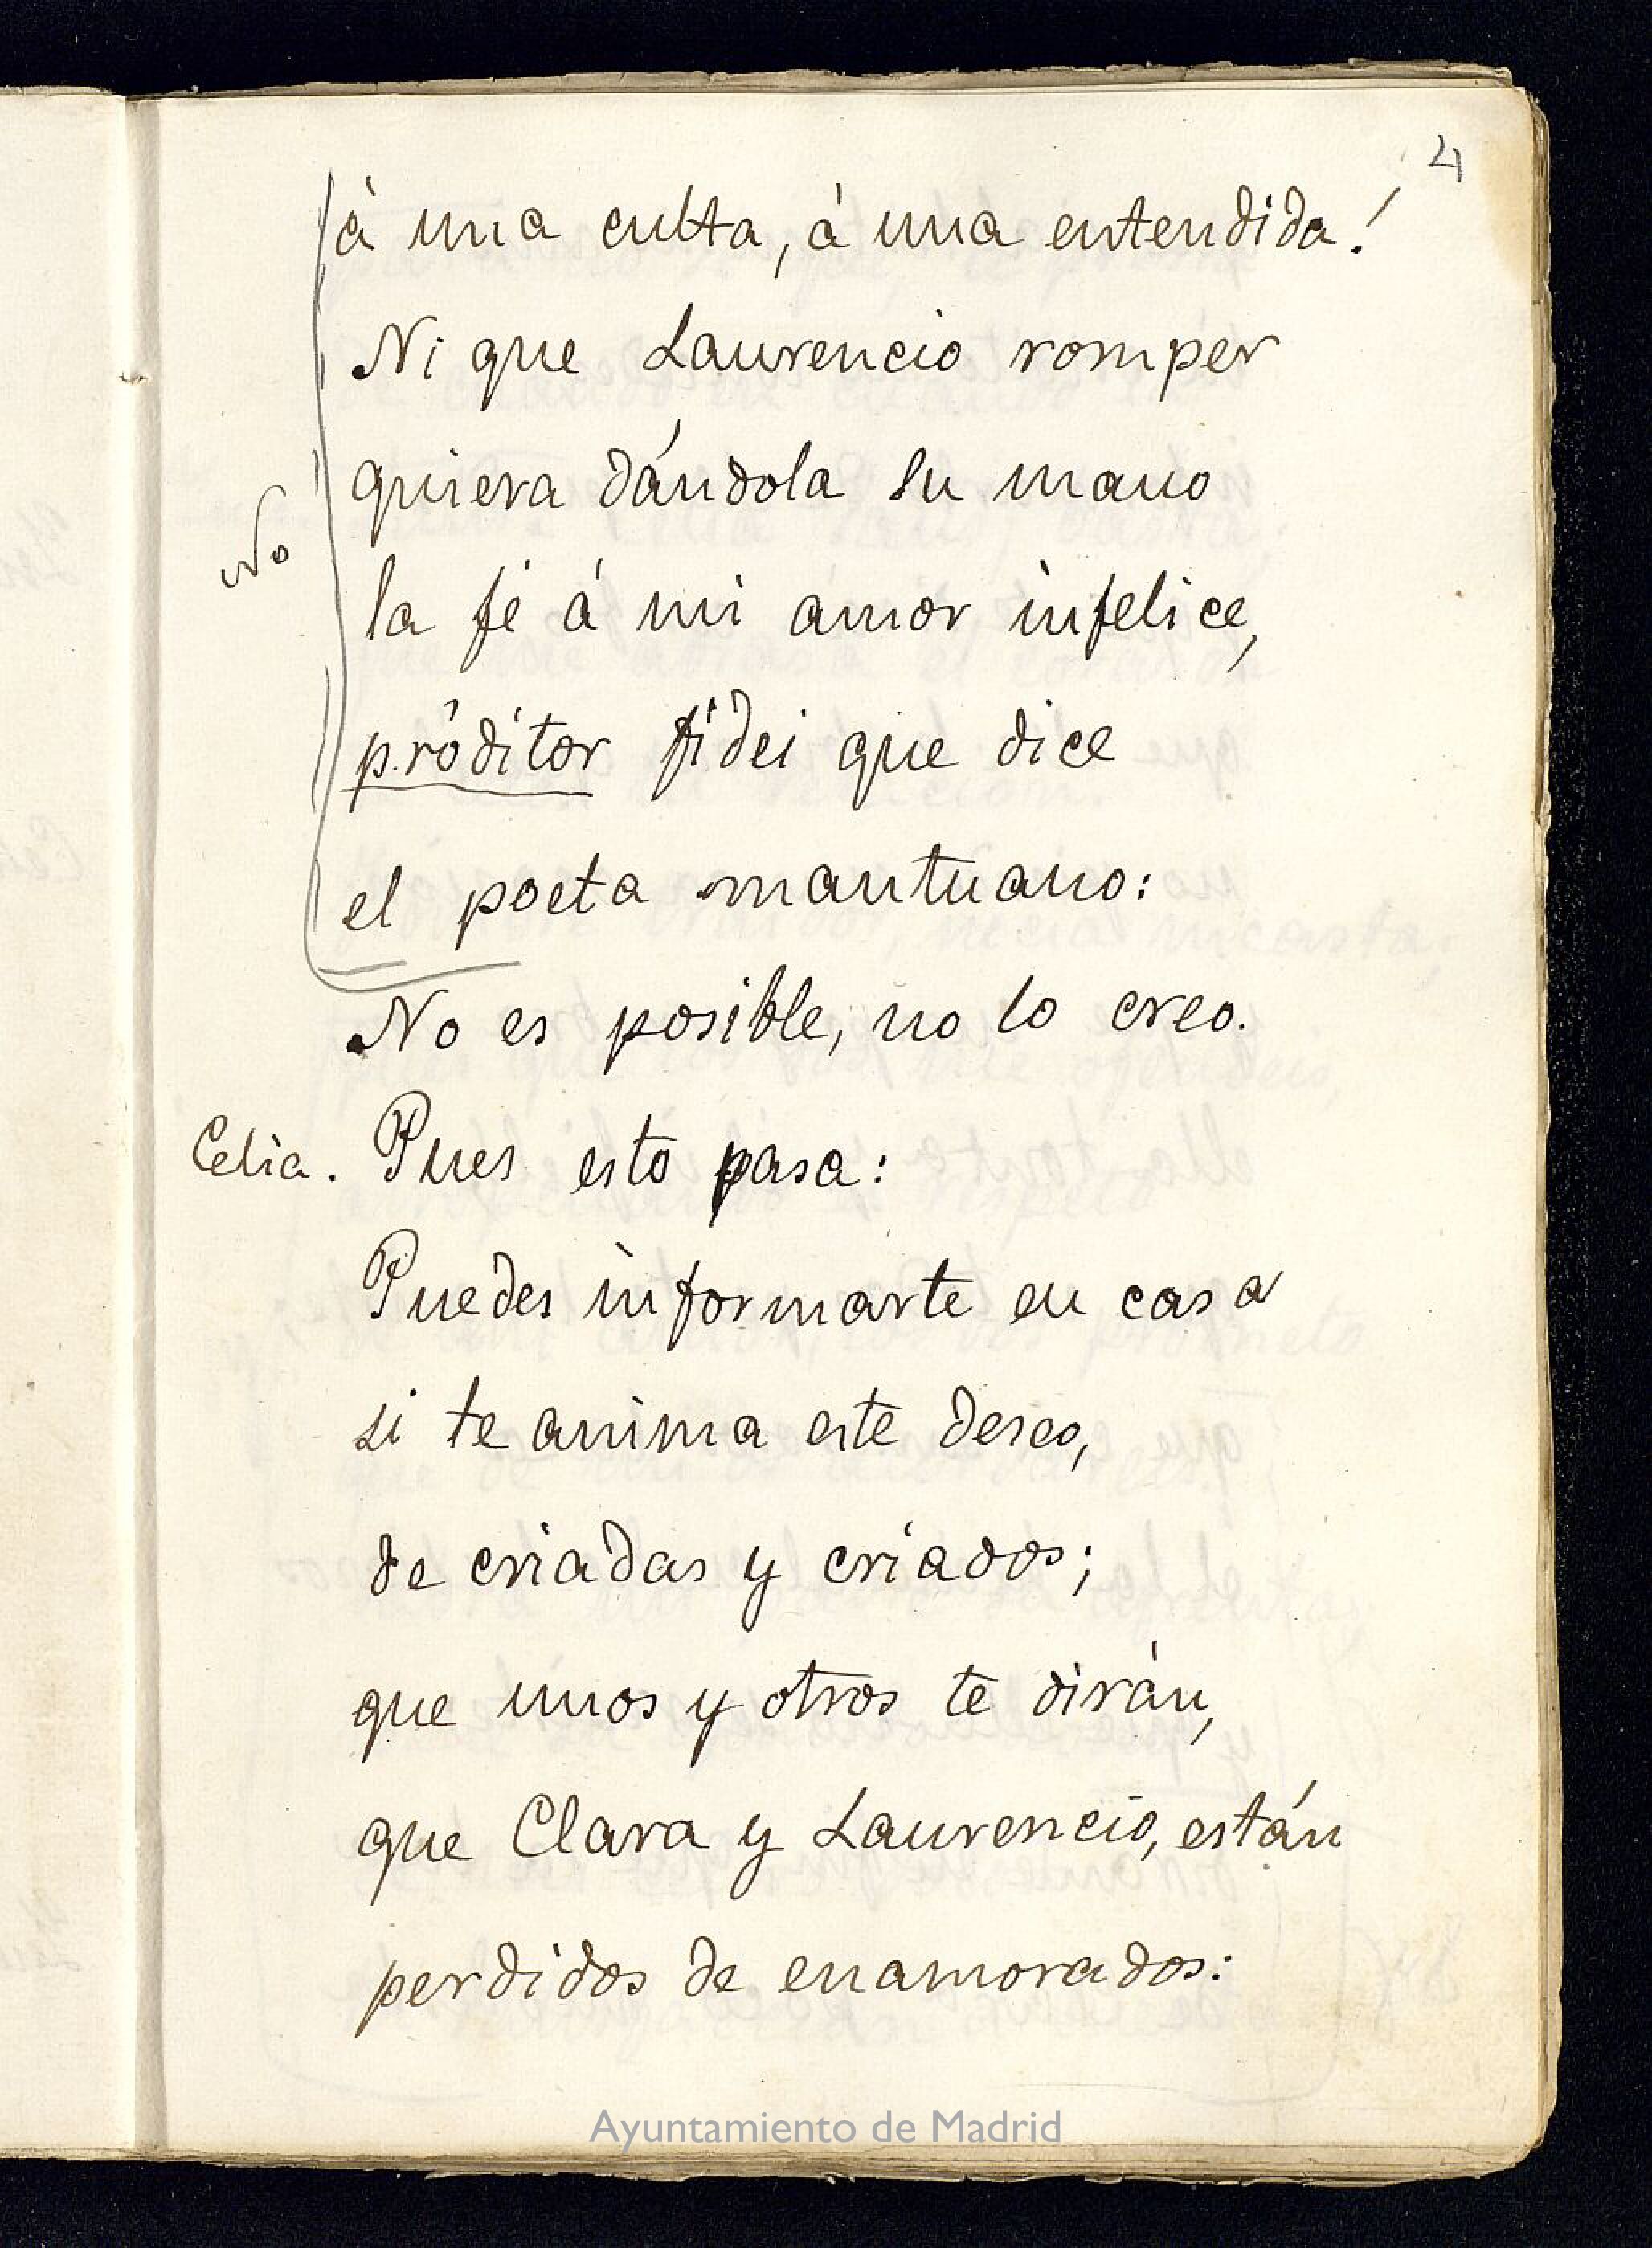 4
à una culta, à una entendida!
Ni que Laurencio romper
quiera dándola su mano
No
la fé á mi amor infelice,
próditor fidei que dice
el poeta mantuano:
No es posible, no lo creo.
Celia. Pues esto pasa:
Puedes informarte en casa
si te anima este deseo,
de criadas y criados;
que unos y otros te dirán,
que Clara y Laurencio, están
perdidos de enamorados:
Ayuntamiento de Madrid